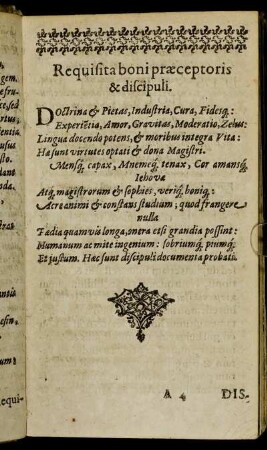 Requisita boni præceptoris
& discipuli.
Doctrina & Pietas, Industria, Cura, Fidesq;:
Experiẽtia, Amor, Gravitas, Moderatio, Zelus:
Lingua docendo potens, & moribus integra Vita:
Ha sunt virtutes optati & dona Magistri.
Mensq; capax, Mnemeq; tenax, Cor amansq;
Iehova
Atq; magistrorum & sophies, veriq; boniq;:
Acre animi & constans studium, quod frangere
nulla
Tædia quamvis longa, onera etsi grandia possint:
blumanum ac mite ingenium: sobriumq; piumq;
Et justum. Hæc sunt discipuli documenta probati.
A 4 DIS-